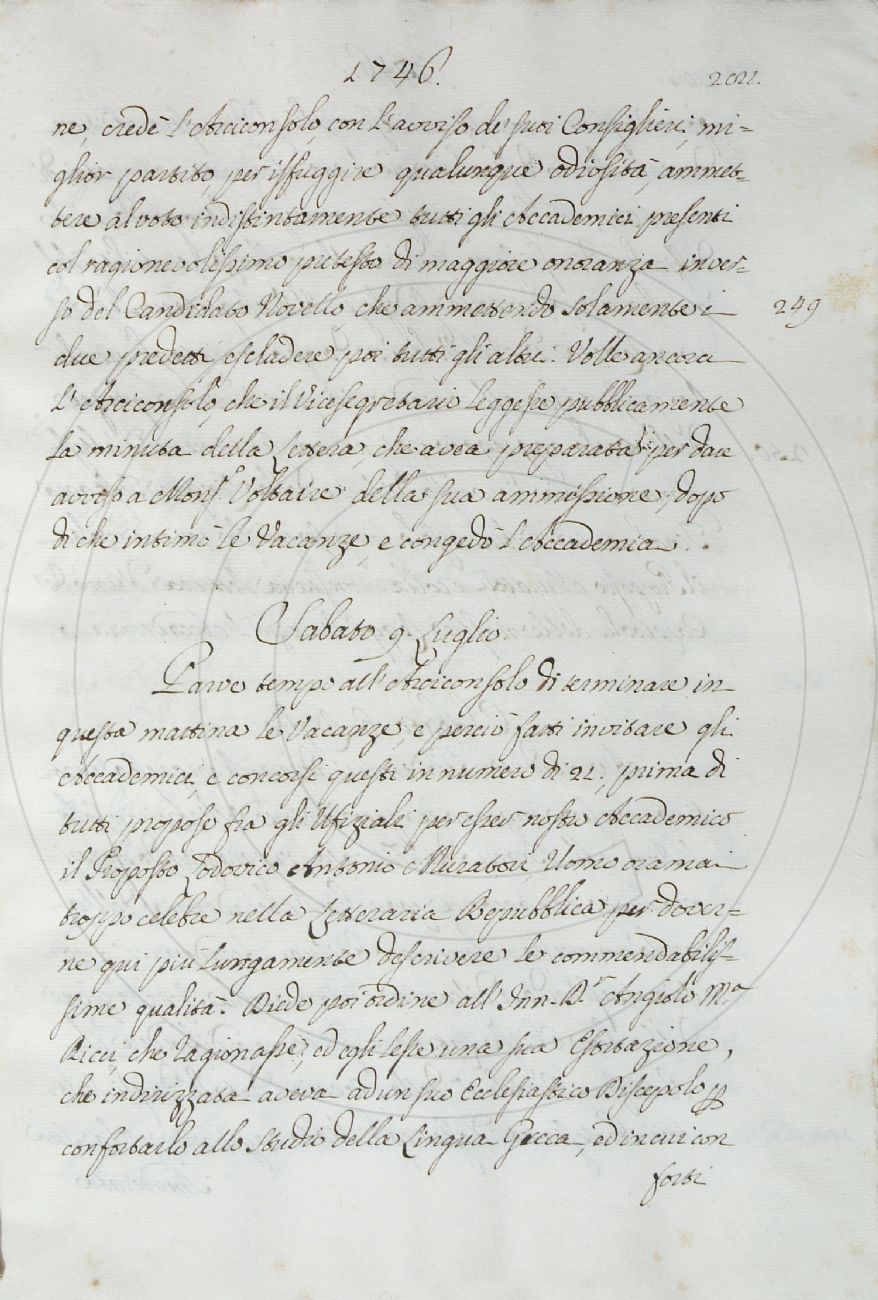 1746.
202.
ne, credè l'Arciconsolo, con l'avviso de' suoi Consiglieri, mi=
glior partito, per isfuggire qualunque odiosità, ammet=
tere al voto indistintamente tutti gli Accademici presenti
col ragionevolissimo pretesto di maggiore onoranza inver=
so del Candidato Novello, che ammettendo solamente i
249
due predetti escludere poi tutti gli altri. Volle ancora
l'Arciconsolo, che il Vicesegretario leggesse pubblicamente
la minuta della Lettera, che avea preparata per dare
avviso a Mons.r Voltaire della sua ammissione, dopo
di che intimò le Vacanze, e congedò l'Accademia.
Sabato 9. Luglio
Parve tempo all'Arciconsolo di terminare in
questa mattina le Vacanze, e perciò fatti invitare gli
Accademici, e concorsi questi in numero di 21., prima di
tutti propose fra gli Ufiziali per esser nostro Accademico
il Proposto Lodovico Antonio Muratori, Uomo oramai
troppo celebre nella Letteraria Repubblica per dover=
ne qui più lungamente descrivere le commendabilis=
sime qualità. Diede poi ordine all'Inn. D.r Angiolo M.a
Ricci, che ragionasse, ed egli lesse una sua Esortazione,
che indirizzata aveva ad un suo Ecclesiastico Discepolo p
confortarlo allo studio della Lingua Greca, ed in cui con
forti